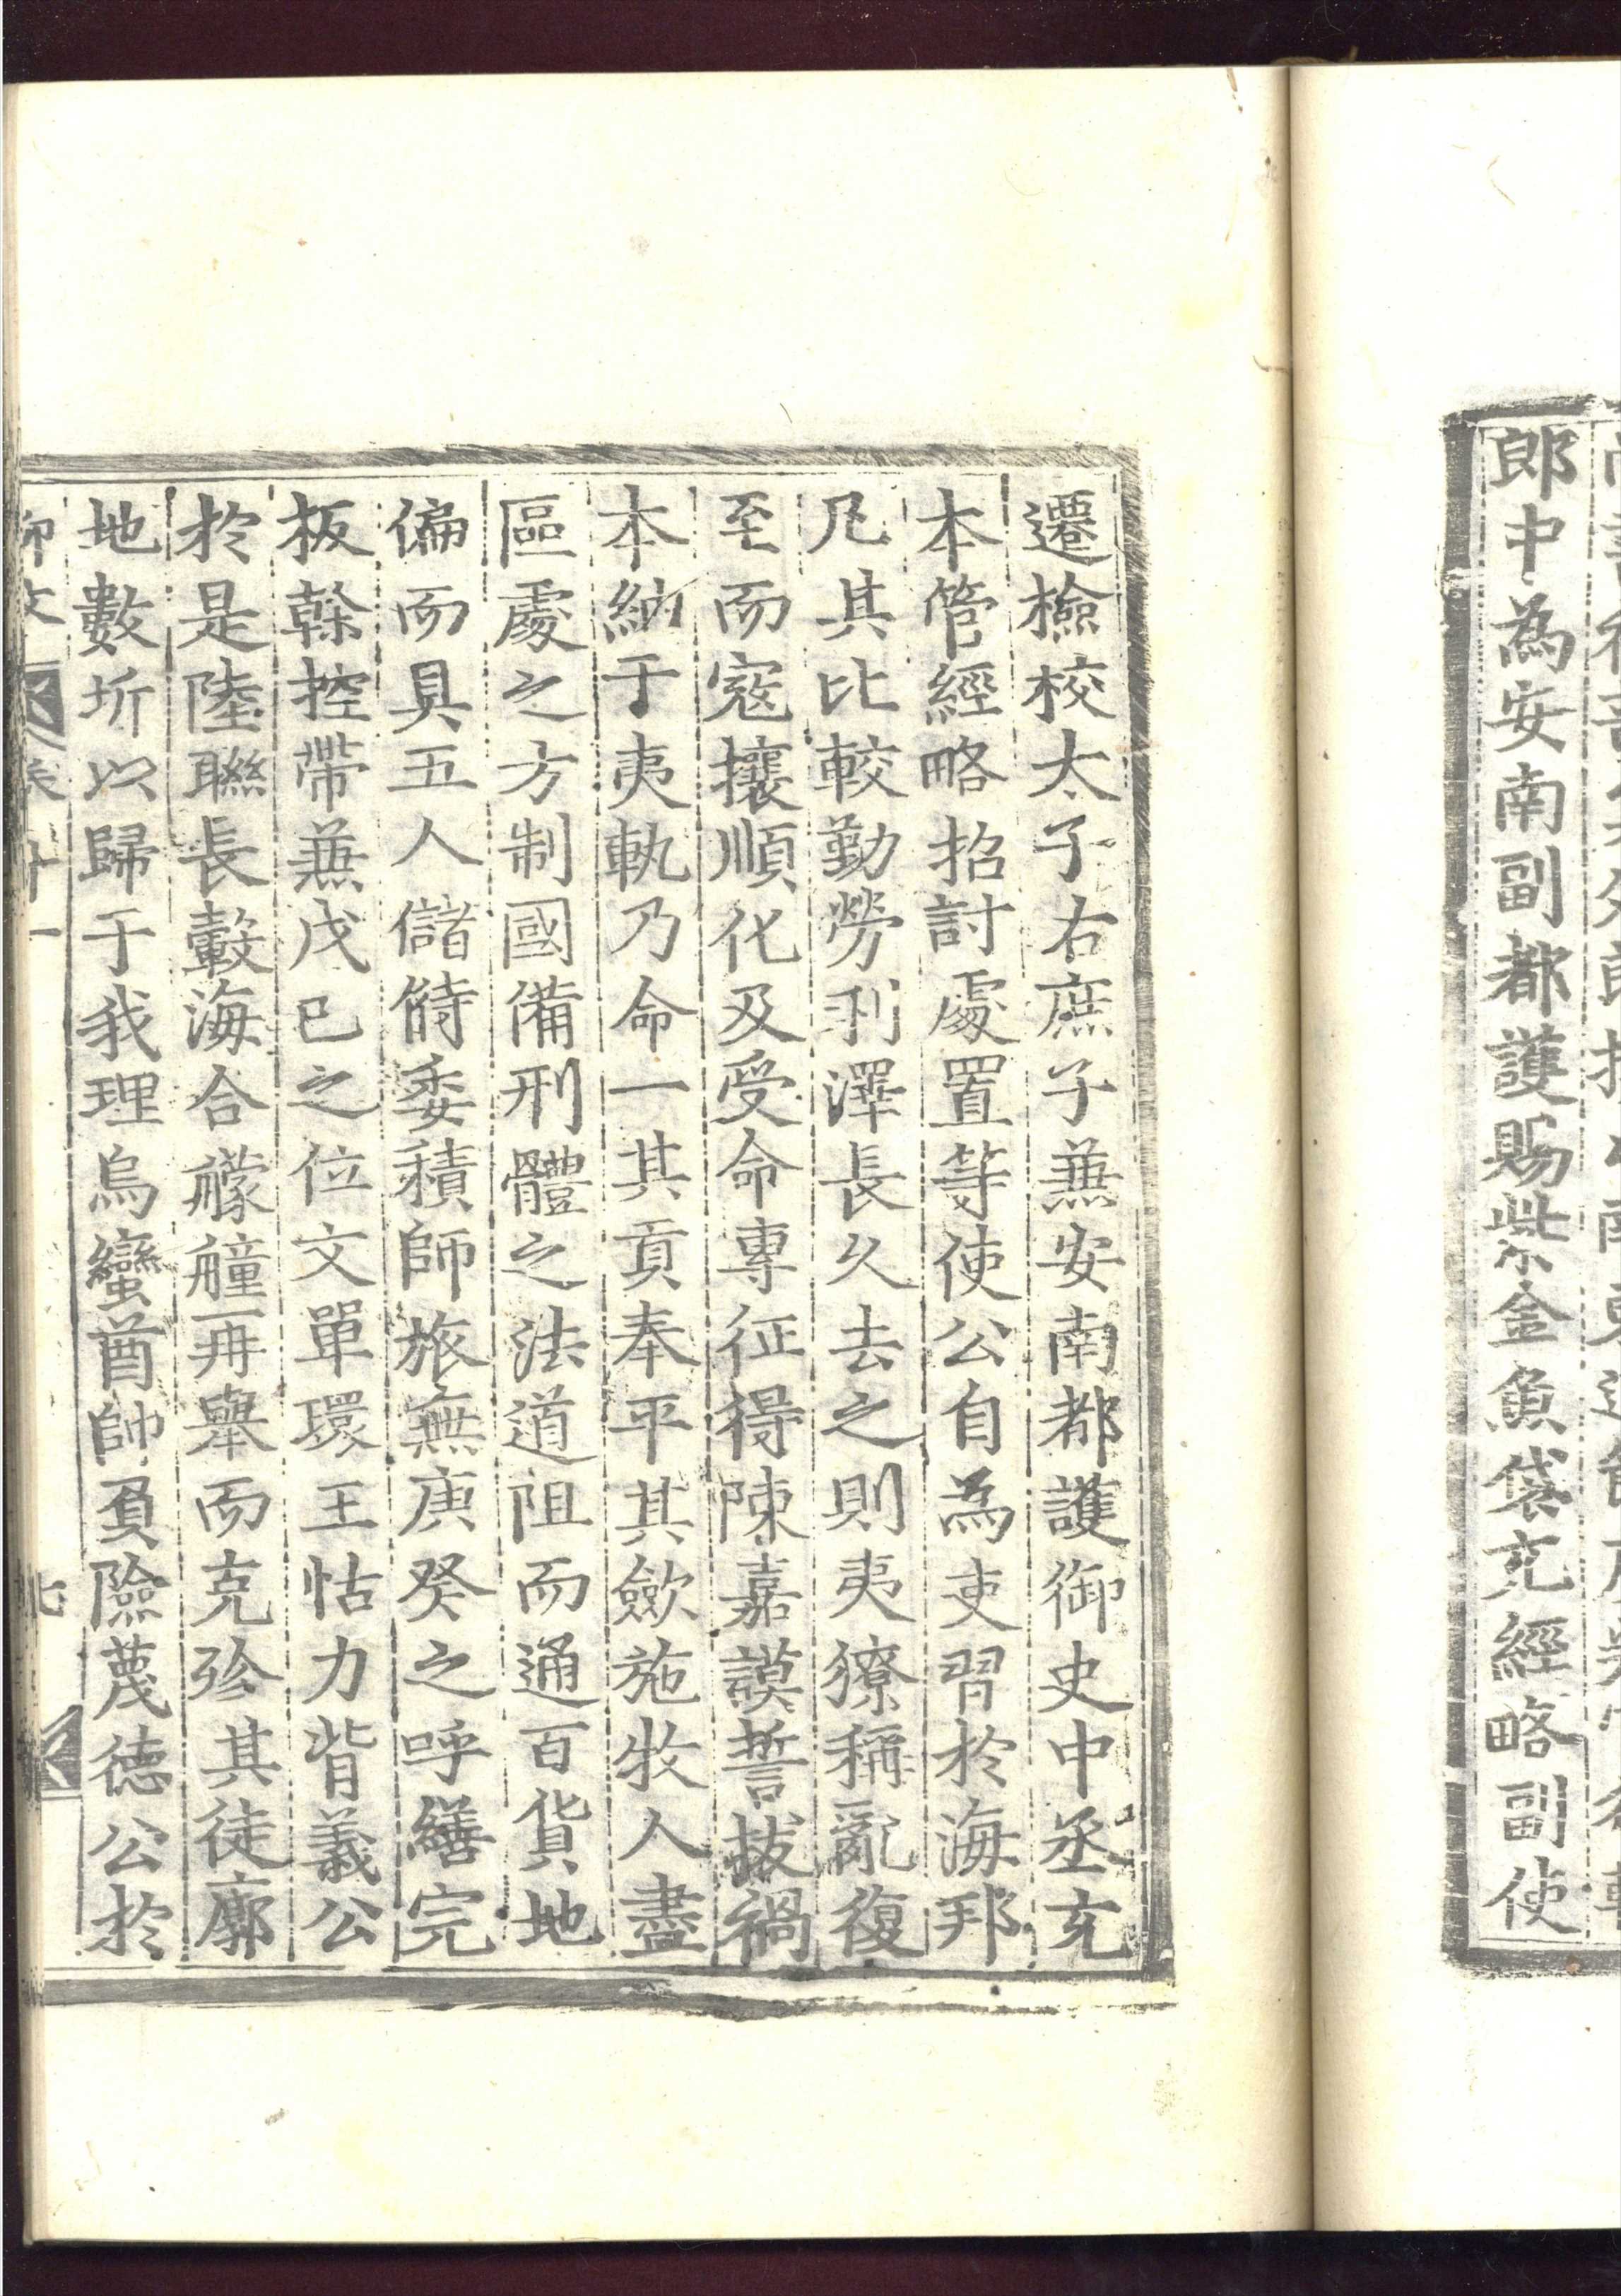 郎中為安南副都護賜紫金魚袋充經略副使
遷檢校太子右庶子兼安南都護御史中丞充
本管經略招討處置等使公自為吏習於海邦
凡其比較勤勞利澤長久去之則夷獠稱亂復
至而寇攘順化及受命專征得陳嘉謨誓拔禍
本納于夷軌乃命一其貢奉平其歛施牧人盡
區處之方制國備刑體之法道阻而通百貨地
偏而具五人儲偫委積師旅無庚癸之呼繕完
板榦控帶兼戊己之位文單環王怙力背義公
於是陸聯長轂海合艨艟再舉而克殄其徒廓
地數圻以歸于我理烏蠻酋帥負險蔑德公於